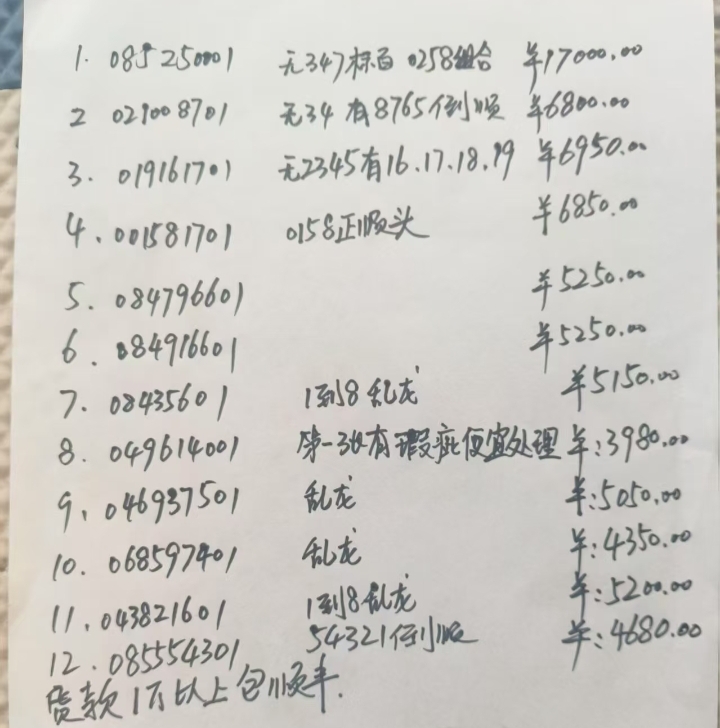 1. 085250001 无347标百 0258组合 ¥17000.00
2 021008701 无34 有8765倒顺 ¥6800.00
3. 019161701 无2345有16.17.18.19 ¥6950.00
4. 001581701 0158正顺头 ¥6850.00
5. 084796601 ¥5250.00
6. 084916601 ¥5250.00
7. 08435601 1到8乱龙 ¥5150.00
8. 049614001 第一张有瑕疵便宜处理 ¥:3980.00
9. 046937501 乱龙 ¥:5050.00
10. 068597401 乱龙 ¥:4350.00
11. 043821601 1到8乱龙 ¥:5200.00
12. 085554301 54321倒顺 ¥:4680.00
货款1万以上包顺丰.